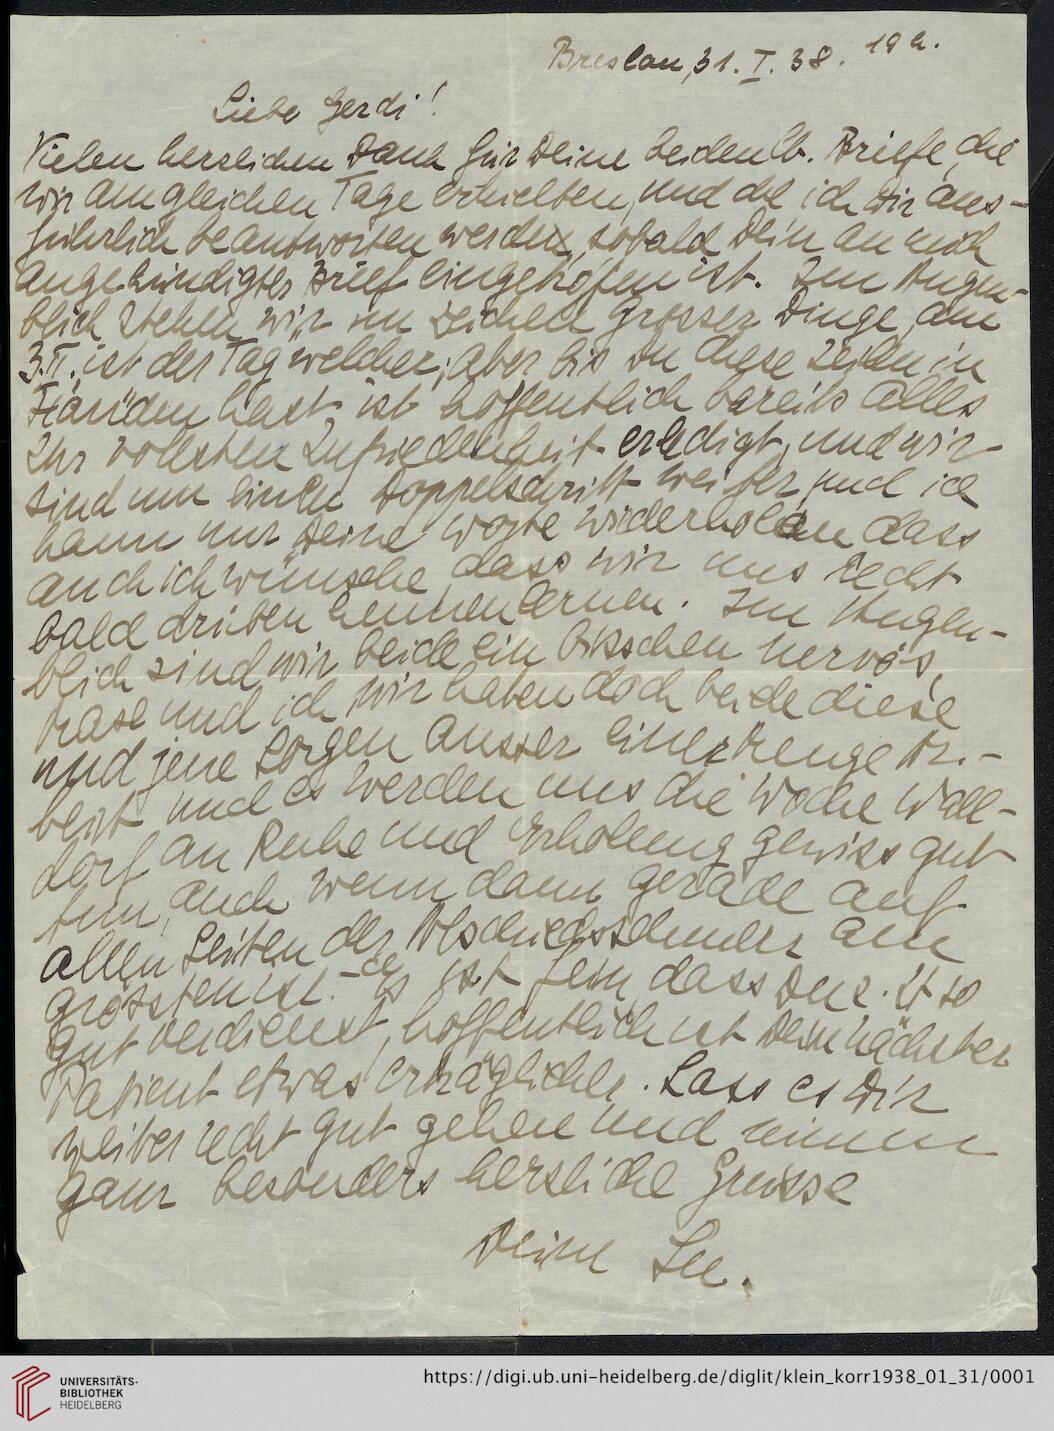 Breslau, 31. I. 38. 19 h.
Liebe Gerdi!
Vielen herzlichen Dank für Deine beiden lb. Briefe, die
wir am gleichen Tage erhielten, und die ich Dir aus-
führlich beantworten werde, sobald Dein an mich
angekündigter Brief eingetroffen ist. Im Augen-
blick stehen wir im Zeichen grosser Dinge, am
3.II. ist der Tag welcher, aber bis Du diese Zeilen in
hast ist hoffentlich bereits alles
zur vollsten Zufriedenheit erledigt, und wir
sind um einen Doppelschritt weiter und ich
kann nur Deine Worte wiederholen dass
auch ich wünsche dass wir uns recht
bald drüben kennenlernen. Im Augen-
blick sind wir beide ein bisschen nervös,
und ich, wir haben doch beide diese
und jene Sorgen ausser einer Menge Ar-
beit und es werden uns die Woche Wall-
dorf an Ruhe und Erholung gewiss gut
tun, auch wenn dann gerade auf
allen Seiten der Abschiedsschmerz am
grössten ist. – Es ist fein, dass Du z. Zt so
gut verdienst, hoffentlich ist Dein nächster
Patient etwas erträglicher. Lass es Dir
weiter recht gut gehen und nimm
ganz besonders herzliche Grüsse
Deine
UNIVERSITÄTS-
BIBLIOTHEK
HEIDELBERG
https://digi.ub.uni-heidelberg.de/diglit/klein_korr1938_01_31/0001